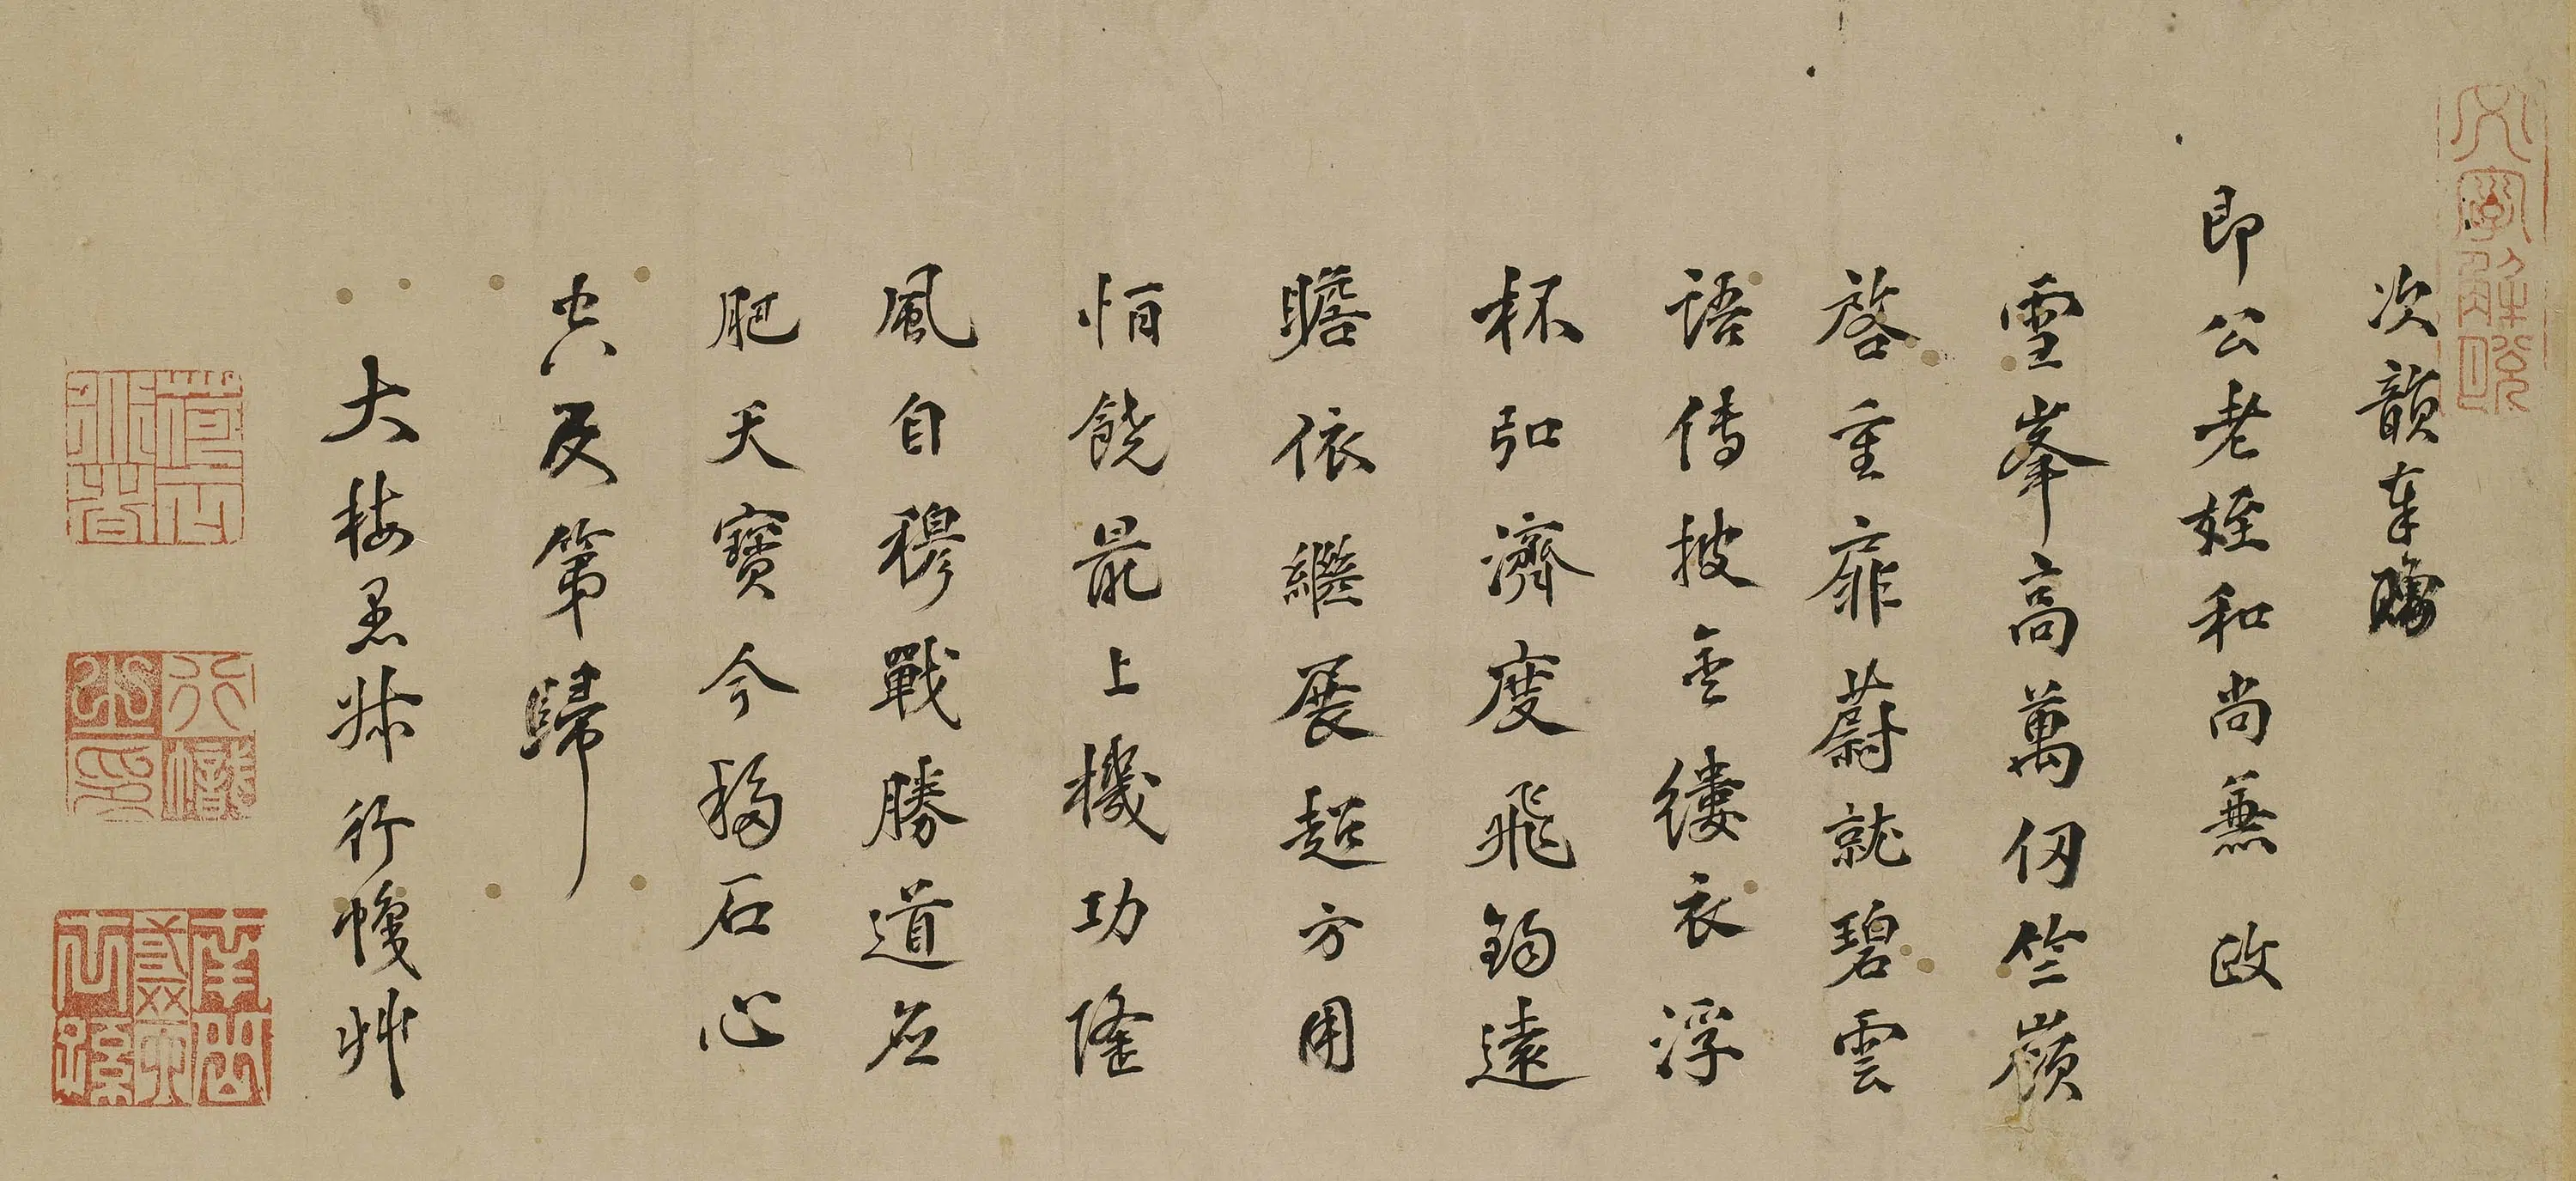 次韻奉
即公老姪和尚兼政
雪峯高萬仞竺嶺
啓重扉蔚就碧雲
語傳披金縷衣浮
杯弘濟度飛錫遠
瞻依繼展超方用
恒饒最上機功隆
風自穆戰勝道應
肥天寶今移石心
空及第歸
大梅愚叔行幟艸